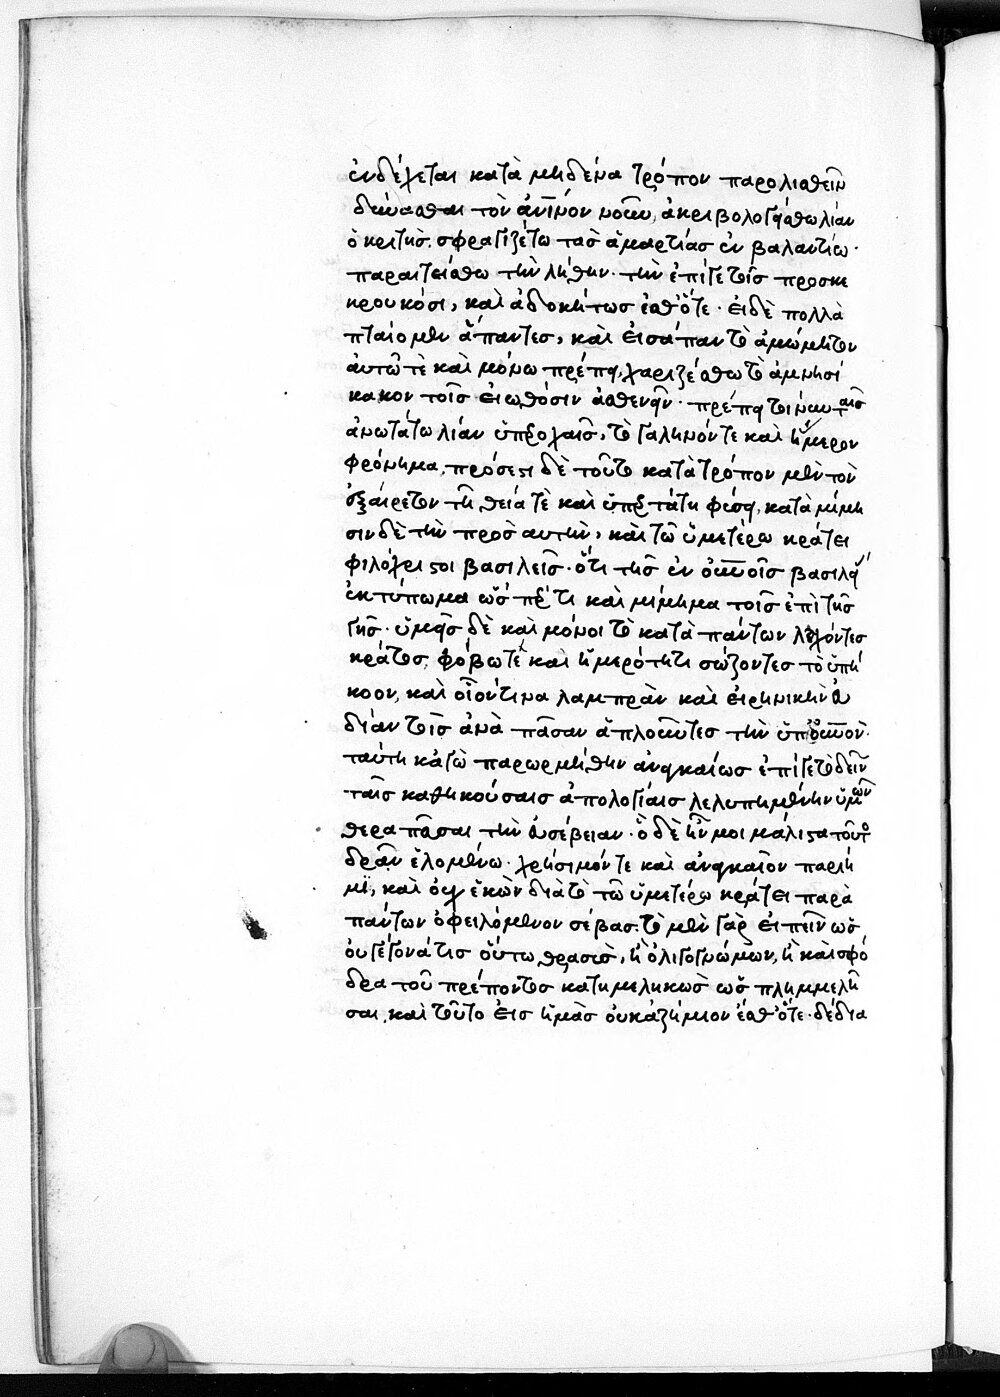 ἐνδέχεται κατὰ μηδένα τρόπον παρολισθεῖν
δύνασθαι τὸν ἀν͞ινον νοῦν, ἀκριβολογείσθω λίαν
ὁ κριτής. σφραγιζέτω τὰς ἁμαρτίας ἐν βαλαντίω·
παραιτείσθω τὴν λήθην· τὴν ἐπίγε τοῖς προσκε
κρουκόσι, καὶ ἀδοκήτως ἔσθ' ὅτε· εἰ δὲ πολλὰ
πταίομεν ἅπαντες, καὶ εἰσάπαν τὸ ἀμώμητον
αὐτῶ τὲ καὶ μόνω πρέπει, χαριζέσθω τὸ ἀμνησί
κακον τοῖς εἰωθόσιν ἀσθενεῖν· πρέπει ταῖς
ἀνωτάτω λίαν ὑπεροχαῖς, τὸ γαληνόν τε καὶ ἥμερον
φρόνημα, πρόσεστι δὲ τοῦτο κατὰ τρόπον μὲν τὸν
ἐξαίρετον τῆ θεία τὲ καὶ ὑπερτάτη φύσει, κατὰ μίμη
σιν δὲ τὴν πρὸς αὐτὴν, καὶ τῶ ὑμετέρω κράτει
φιλόχριστοι βασιλεῖς· ὅτι τῆς ἐν οὐ͞νοῖς βασιλεί
ἐκτύπωμα ὥσπερ τι καὶ μίμημα τοῖς ἐπὶ τῆς
γῆς· ὑμεῖς δὲ καὶ μόνοι τὸ κατὰ πάντων λαχόντες
κράτος, φόβω τὲ καὶ ἡμερότητι σώζοντες τὸ ὑπή
κοον, καὶ οἷόν τινα λαμπρὰν καὶ εἰρηνικὴν εὐ
δίαν τοῖς ἀνὰ πᾶσαν ἁπλοῦντες τὴν ὑπ' οὐ͞νόν·
ταύτη κἀγὼ παρωρμήθην ἀναγκαίως ἐπίγε τὸ δεῖν
ταῖς καθηκούσαις ἀπολογίαις λελυπημένην ὑμῶν
θεραπεῦσαι τὴν εὐσέβειαν· ὃ δὲ ἦν μοι μάλιστα τοῦτο
δρᾶν ἑλομένω· χρήσιμόν τε καὶ ἀναγκαῖον παρῆ
μι, καὶ οὐχ ἑκὼν διὰ τὸ τῶ ὑμετέρω κράτει παρὰ
πάντων ὀφειλόμενον σέβας. τὸ μὲν γὰρ εἰπεῖν ὡς
οὐ γέγονά τις οὕτω θρασὺς, ἢ ὀλιγογνώμων, ἢ καὶ σφό
δρα τοῦ πρέποντος κατημεληκὼς ὡς πλημμελῆ
σαι, καὶ τοῦτο εἰς ἡμᾶς οὐκ ἀζήμιον ἔσθ' ὅτε· δέδια